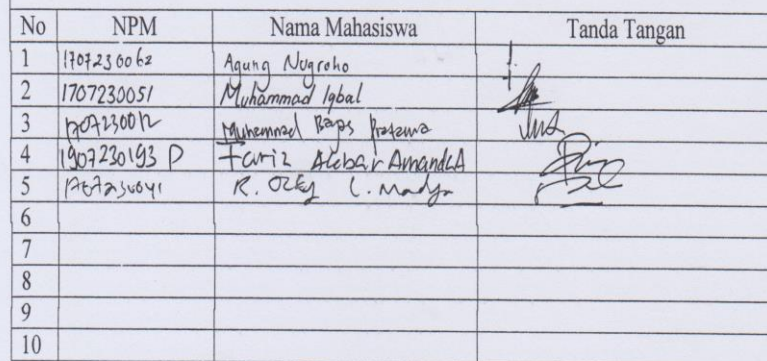 No NPM Nama Mahasiswa Tanda Tangan
1 1707230062 Agung Nugroho
2 1707230051 Muhammad Iqbal
3 1707230012 Muhammad Bagas Pratama
4 1907230193 P Fariz Akbar Amanda
5 1707230041 R. Madya
6
7
8
9
10